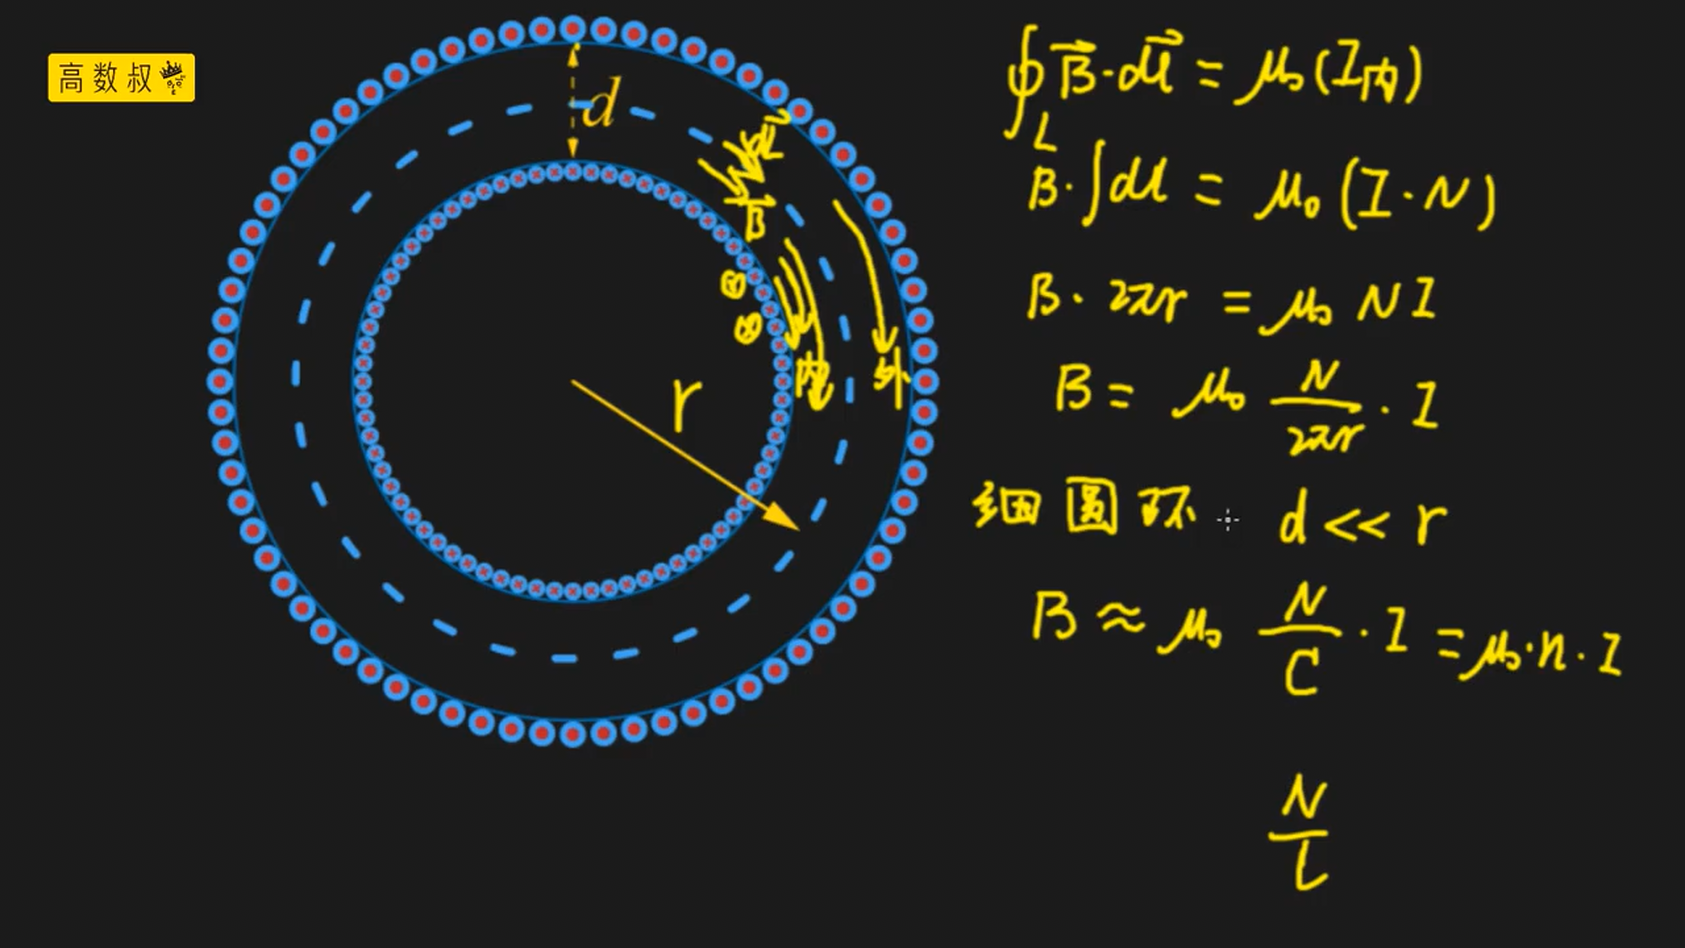 高数叔
d
dl
B
内
外
r
∮_L B⃗·dl⃗ = μ₀(I内)
B·∫dl = μ₀(I·N)
B·2πr = μ₀NI
B = μ₀ N/2πr · I
细圆环 d<<r
B ≈ μ₀ N/C · I = μ₀·n·I
N/L